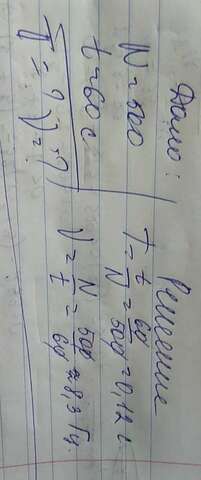 Дано:
N = 500
t = 60 c
T = ? ν = ?
Решение
T = t/N = 60/500 = 0,12 c.
ν = N/t = 500/60 ≈ 8,3 Гц.